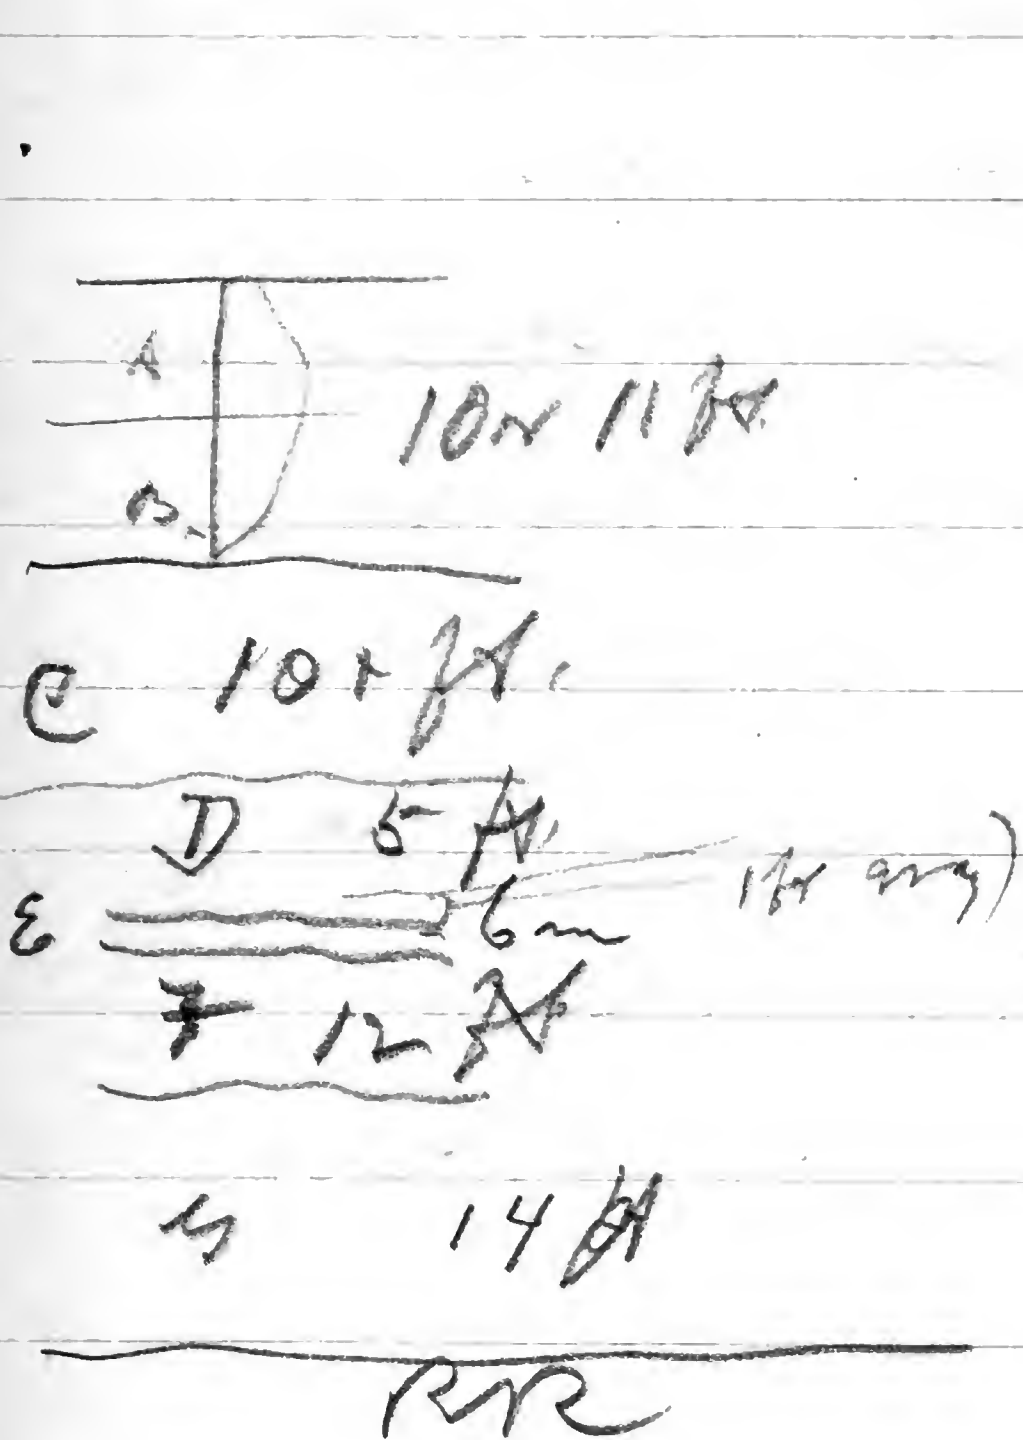 A
10 or 11 ft.
B.
C 10+ ft.
D 5 ft.
E 6 in
1 ft gray)
F 12 ft
G 14 ft
RR